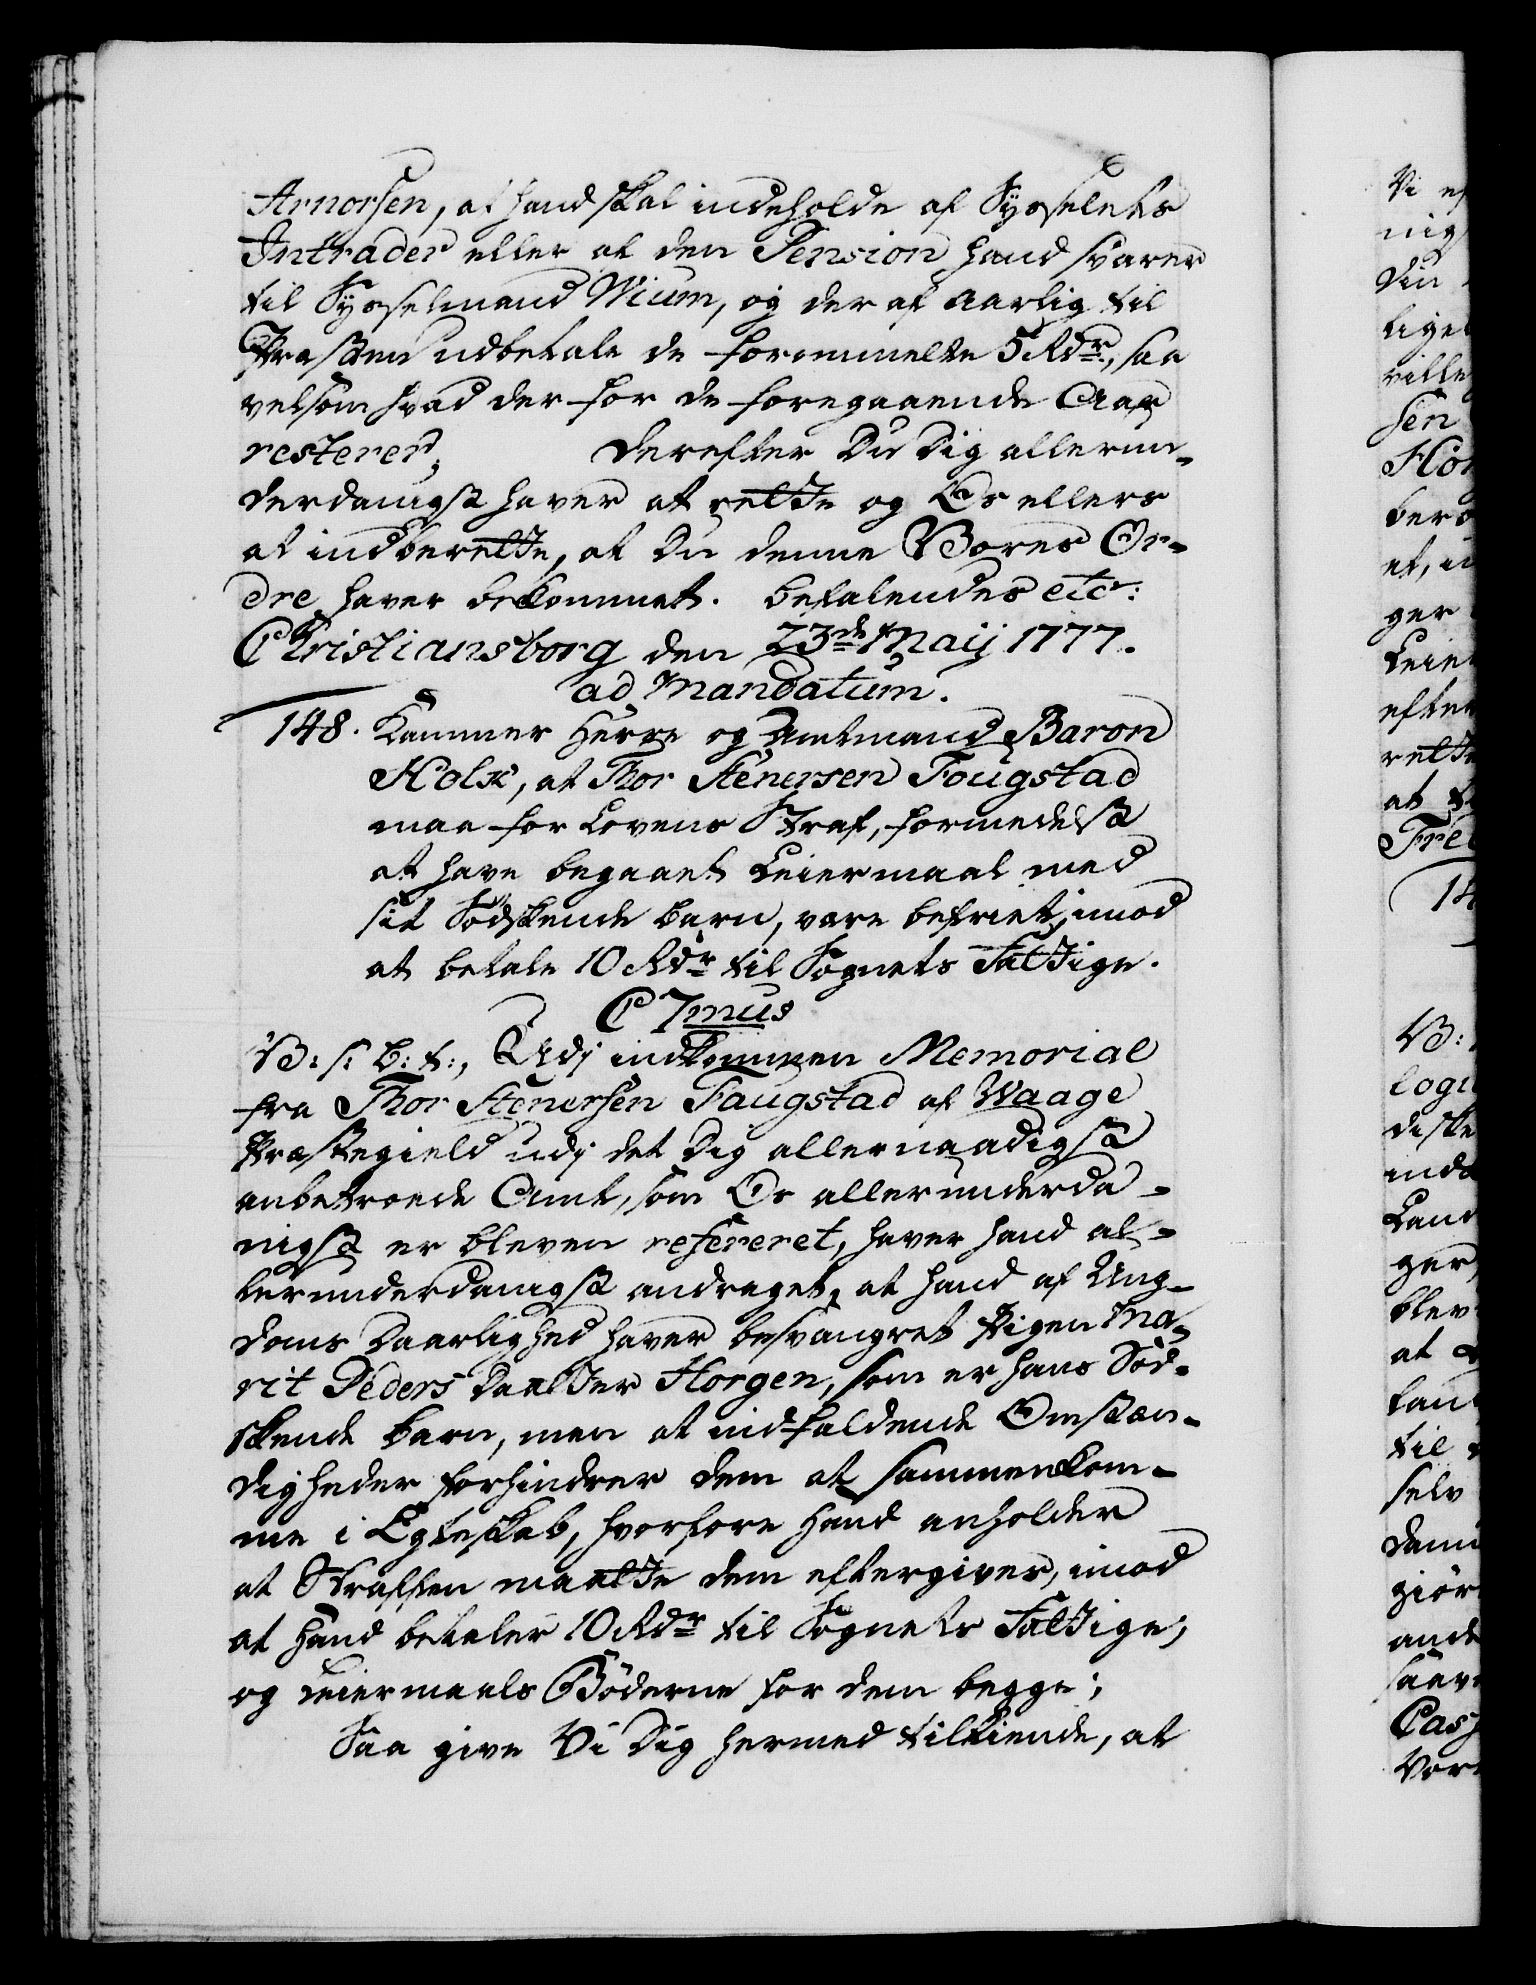 Arnorsen, at hand skal indeholde af Sysselets
Intrader eller af den Pension hand svarer
til Sysselmand Wium, og der af aarlig til
Præsten udbetale de forommelte 5 Rdr., saa
velsom hvad der for de foregaaende Aar
resterer, derefter Du Dig allerun-
derdanigst haver at rette og Os ellers
at indberette, at Du denne Vores Or-
dre haver bekommet. Befalendes etc:
Christiansborg den 23de Maij 1777.
ad Mandatum.
148. Kammer Herre og Amtmand Baron
Holk, at Thor Stenersen Fougstad
maa for Lovens Straf, formedelst
at have begaaet Leiermaal med
sit Sødskende Barn, være befriet, imod
at betale 10 Rdr til Sognets Fattige.
C 7mus
V: s: b: t:, Udj indkommen Memorial
fra Thor Stenersen Faugstad af Waage
Præstegield udj det Dig allernaadigst
anbetroede Amt, som Os allerunderda-
nigst er bleven refereret, haver hand al-
lerunderdanigst andraget, at hand af Ung-
doms Daarlighed haver besvangret Pigen Ma-
rit Peders Daatter Horgen, som er hans Sød-
skende Barn, men at indfaldende Omstæn-
digheder forhindrer dem at sammenkom-
me i Egteskab, hvorfore hand anholder
at Straffen maatte dem eftergives, imod
at hand betaler 10 Rdr til Sognets Fattige,
og Leiermaals Bøderne for dem begge;
Saa give Vi Dig hermed tilkiende, at